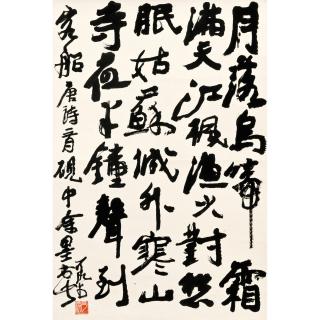 月落烏啼霜
滿天江楓漁火對愁
眠姑蘇城外寒山
寺夜半鐘聲到
客船唐詩一首硯中余墨